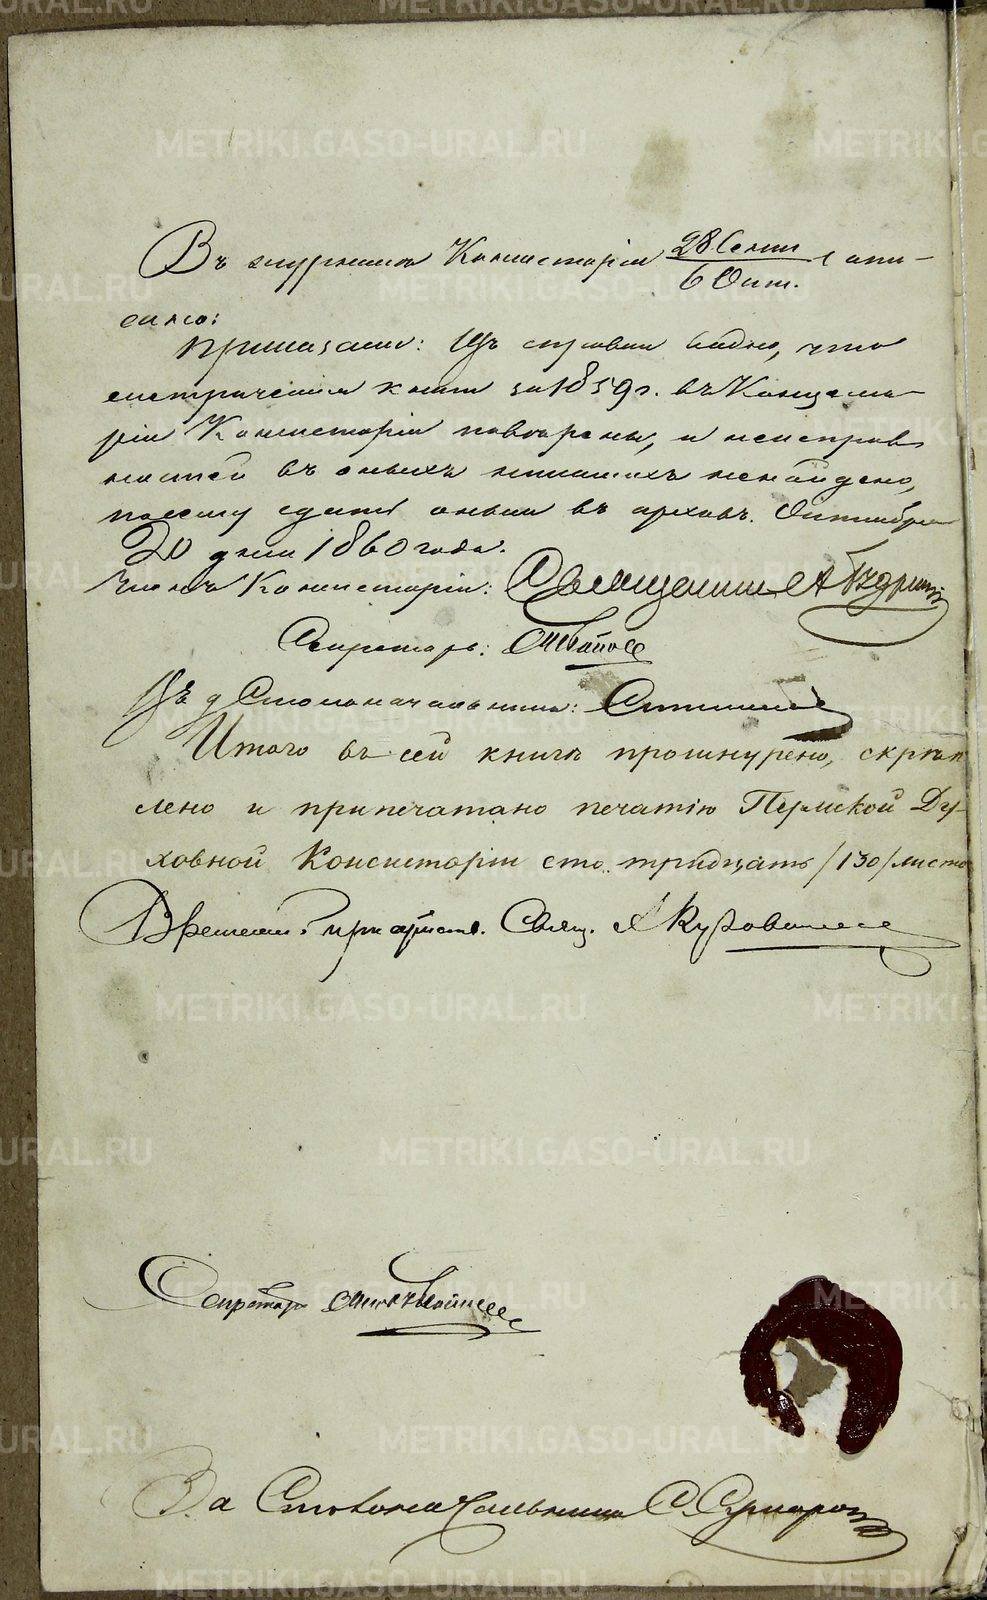 Въ журналѣ Консисторіи 28 Сент. / 6 Окт. запи-
сано:
Приказали: Изъ справки видно, что
метрическія книги за 1859 г. въ Канцеля-
ріи Консисторіи повѣрены, и неисправ-
ностей въ оныхъ книгахъ ненайдено,
посему сдать оныя въ архивъ. Октября
20 дня 1860 года.
Членъ Консисторіи: Священникъ А
Секретарь:
Столоначальника:
Итого въ сей книгѣ прошнурено, скрѣп
лено и припечатано печатію Пермской Ду-
ховной Консисторіи сто тридцать /130/ листо
Времен. присутств. Свящ. А
Секретарь
За Столоначальника С.
METRIKI.GASO-URAL.RU